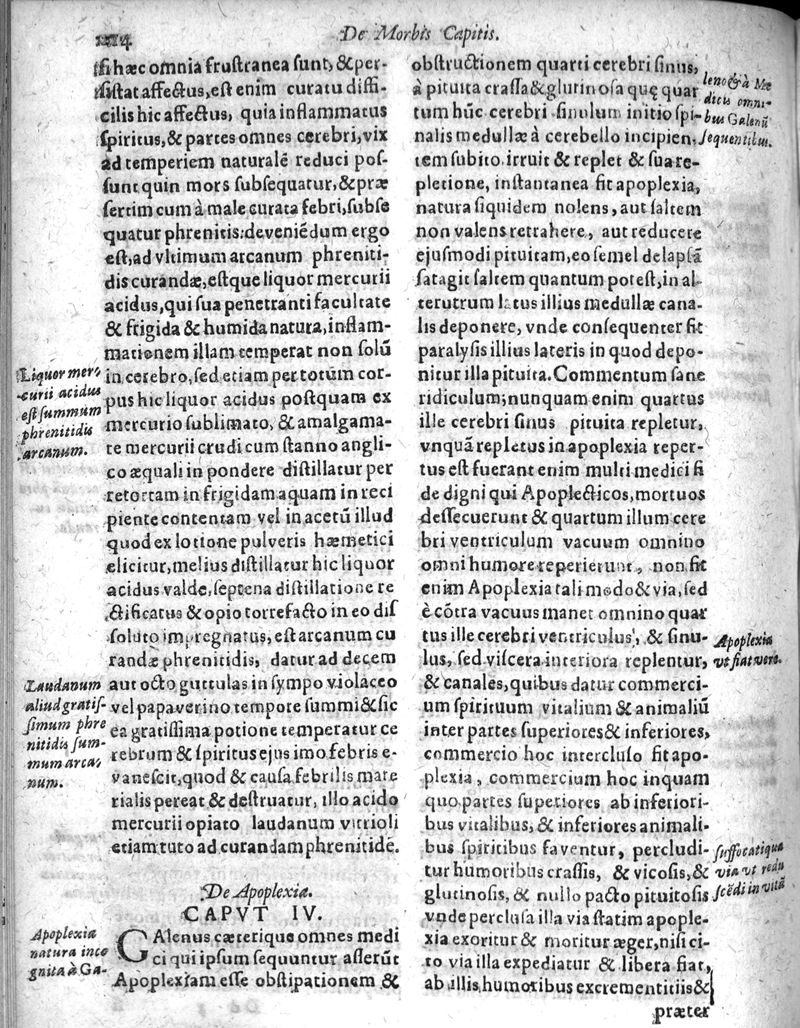 De Morbis Capitis.
si hæc omnia frustranea sunt, & per-
sistat affectus, est enim curatu diffi-
cilis hic affectus, quia inflammatus
spiritus, & partes omnes cerebri, vix
ad temperiem naturalē reduci pos-
sunt quin mors subsequatur, & præ
sertim cum à male curata febri, subse
quatur phrenitis: deveniēdum ergo
est, ad vltimum arcanum phreniti-
dis curandæ, estque liquor mercurii
acidus, qui sua penetranti facultate
& frigida & humida natura, inflam-
mationem illam temperat non solū
in cerebro, sed etiam per totum cor-
pus hic liquor acidus postquam ex
mercurio sublimato, & amalgama-
te mercurii crudi cum stanno angli-
co æquali in pondere distillatur per
retortam in frigidam aquam in reci
piente contentam vel in acetū illud
quod ex lotione pulveris hæmetici
elicitur, melius distillatur hic liquor
acidus valde, septena distillatione re
ctificatus & opio torrefacto in eo dis
soluto impregnatus, est arcanum cu
randæ phrenitidis, datur ad decem
aut octo guttulas in sympo violaceo
vel papaverino tempore summi & sic
ea gratissima potione temperatur ce
rebrum & spiritus ejus imo febris e-
vanescit, quod & causa febrilis mate
rialis pereat & destruatur, illo acido
mercurii opiato laudanum vitrioli
etiam tuto ad curandam phrenitidē.
Liquor mer-
curii acidus
est summum
phrenitidis
arcanum.
Laudanum
aliud gratis-
simum phre
nitidis sum-
mum arca-
num.
De Apoplexia.
CAPVT IV.
GAlenus cæterique omnes medi
ci qui ipsum sequuntur asserūt
Apoplexiam esse obstipationem &
Apoplexia
natura inco
gnita à Ga-
obstructionem quarti cerebri sinus,
à pituita crassa & glutinosa quę quar
tum hūc cerebri sinulum initio spi-
nalis medullæ à cerebello incipien-
tem subito irruit & replet & sua re-
pletione, instantanea fit apoplexia,
natura siquidem nolens, aut saltem
non valens retrahere, aut reducere
ejusmodi pituitam, eo semel delapsā
satagit saltem quantum potest, in al-
terutrum latus illius medullæ cana-
lis deponere, vnde consequenter fit
paralysis illius lateris in quod depo-
nitur illa pituita. Commentum sane
ridiculum; nunquam enim quartus
ille cerebri sinus pituita repletur,
vnquā repletus in apoplexia reper-
tus est fuerant enim multi medici fi
de digni qui Apoplecticos, mortuos
dessecuerunt & quartum illum cere
bri ventriculum vacuum omnino
omni humore reperierunt, non fit
enim Apoplexia tali modo & via, sed
è cōtra vacuus manet omnino quar
tus ille cerebri ventriculus, & sinu-
lus, sed viscera interiora replentur,
& canales, quibus datur commerci-
um spirituum vitalium & animaliū
inter partes superiores & inferiores,
commercio hoc intercluso fit apo-
plexia, commercium hoc inquam
quo partes superiores ab inferiori-
bus vitalibus, & inferiores animali-
bus spiritibus faventur, percludi-
tur humoribus crassis, & vicosis, &
glutinosis, & nullo pacto pituitosis
vnde perclusa illa via statim apople-
xia exoritur & moritur æger, nisi ci-
to via illa expediatur & libera fiat,
ab illis, humoribus excrementitiis &
præter
leno & à Me
dicis omni-
bus Galenū
sequentibus.
Apoplexia
vt fiat vere.
suffocatiqua
via vt redu